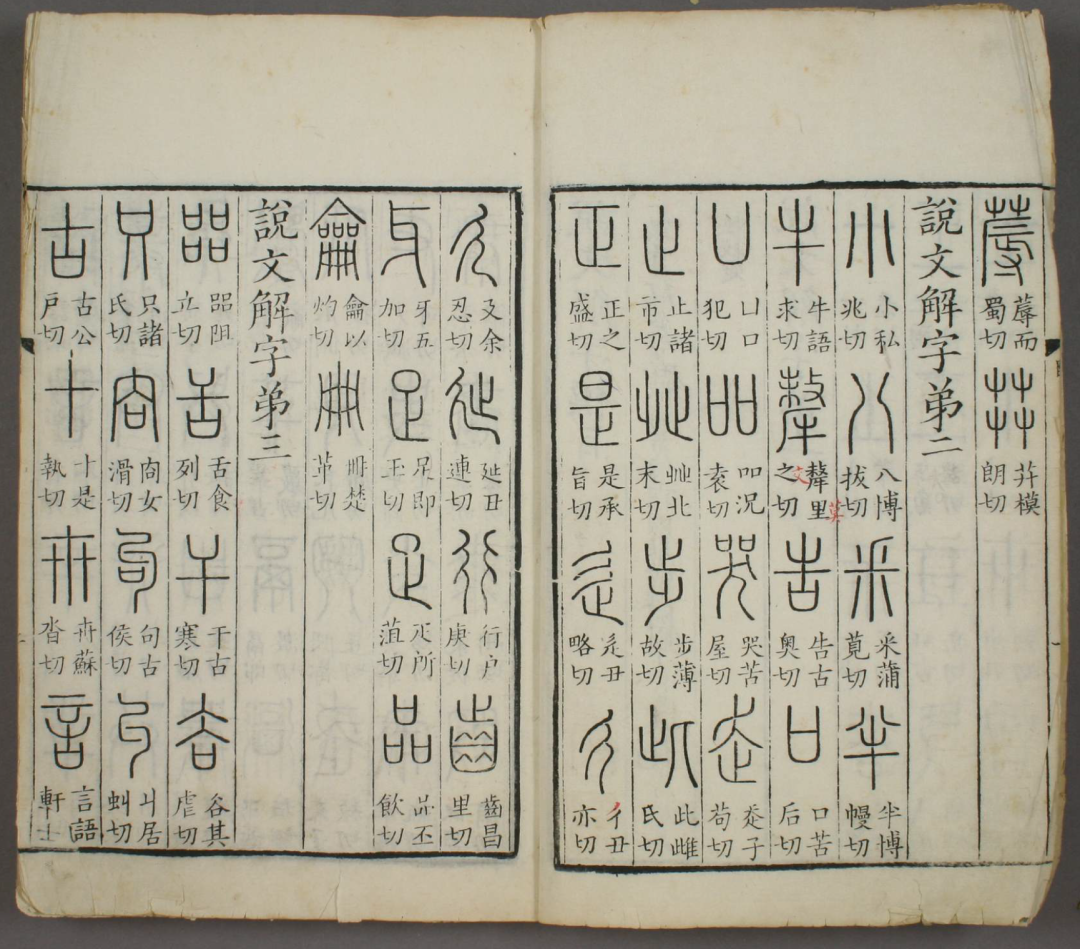 蓐 蓐而蜀切 茻 茻模朗切
說文解字弟二
小 小私兆切 八 八博拔切 釆 釆蒲莧切 半 半博幔切
牛 牛語求切 犛 犛里之切 告 告古奥切 口 口苦后切
凵 凵口犯切 吅 吅況袁切 哭 哭苦屋切 走 走子苟切
止 止諸市切 癶 癶北末切 步 步薄故切 此 此雌氏切
正 正之盛切 是 是承旨切 辵 辵丑略切 彳 彳丑亦切
廴 廴余忍切 㢟 㢟丑連切 行 行户庚切 齒 齒昌里切
牙 牙五加切 足 足即玉切 疋 疋所菹切 品 品丕飲切
龠 龠以灼切 冊 冊楚革切
說文解字弟三
㗊 㗊阻立切 舌 舌食列切 干 干古寒切 谷 谷其虐切
只 只諸氏切 㕯 㕯女滑切 句 句古侯切 丩 丩居虯切
古 古公戶切 十 十是執切 卅 卅蘇沓切 言 言語軒